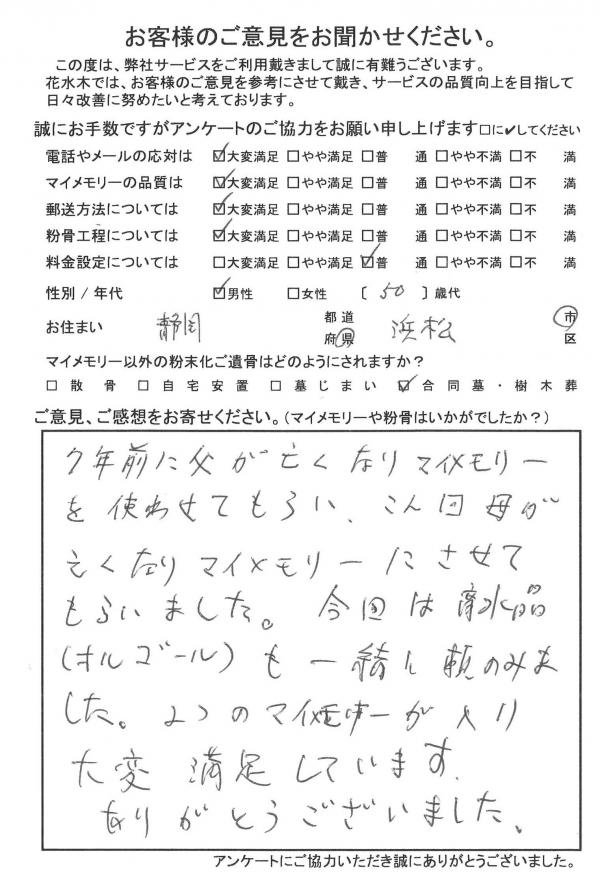 お客様のご意見をお聞かせください。
この度は、弊社サービスをご利用戴きまして誠に有難うございます。
花水木では、お客様のご意見を参考にさせて戴き、サービスの品質向上を目指して
日々改善に努めたいと考えております。
誠にお手数ですがアンケートのご協力をお願い申し上げます□に✔してください
電話やメールの応対は ☑大変満足 □やや満足 □普 通 □やや不満 □不 満
マイメモリーの品質は ☑大変満足 □やや満足 □普 通 □やや不満 □不 満
郵送方法については ☑大変満足 □やや満足 □普 通 □やや不満 □不 満
粉骨工程については ☑大変満足 □やや満足 □普 通 □やや不満 □不 満
料金設定については □大変満足 □やや満足 ☑普 通 □やや不満 □不 満
性別/年代 ☑男性 □女性 〔 50 〕歳代
お住まい 静岡 都道府県 浜松 市区
マイメモリー以外の粉末化ご遺骨はどのようにされますか？
□散骨 □自宅安置 □墓じまい ☑合同墓・樹木葬
ご意見、ご感想をお寄せください。(マイメモリーや粉骨はいかがでしたか？)
7年前に父が亡くなりマイメモリー
を使わせてもらい、こん回母が
亡くなりマイメモリーにさせて
もらいました。今回は水晶
(オルゴール)も一緒に頼のみま
した。2つのマイメモリーが入り
大変満足しています.
ありがとうございました。
アンケートにご協力いただき誠にありがとうございました。